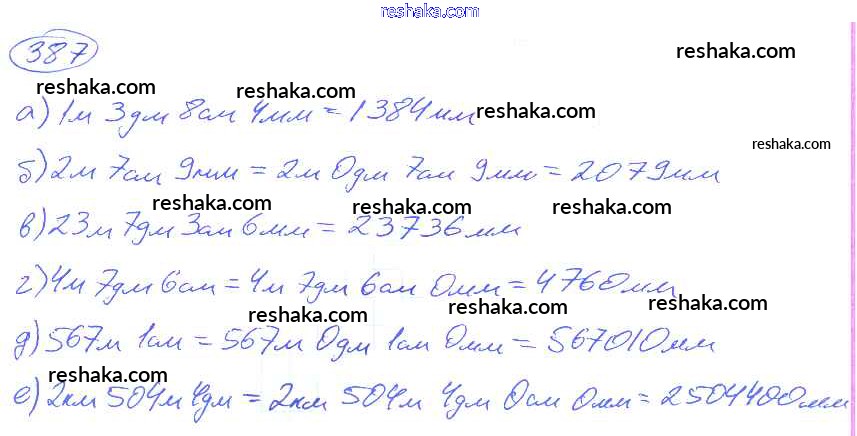 reshaka.com
387
reshaka.com
reshaka.com reshaka.com
а) 1м 3дм 8см 4мм = 1384мм reshaka.com
reshaka.com
б) 2м 7см 9мм = 2м 0дм 7см 9мм = 2079мм
reshaka.com reshaka.com reshaka.com
в) 23м 7дм 3см 6мм = 23736мм
г) 4м 7дм 6см = 4м 7дм 6см 0мм = 4760мм
reshaka.com reshaka.com reshaka.com
д) 567м 1см = 567м 0дм 1см 0мм = 567010мм
reshaka.com
е) 2км 504м 4дм = 2км 504м 4дм 0см 0мм = 2504400мм